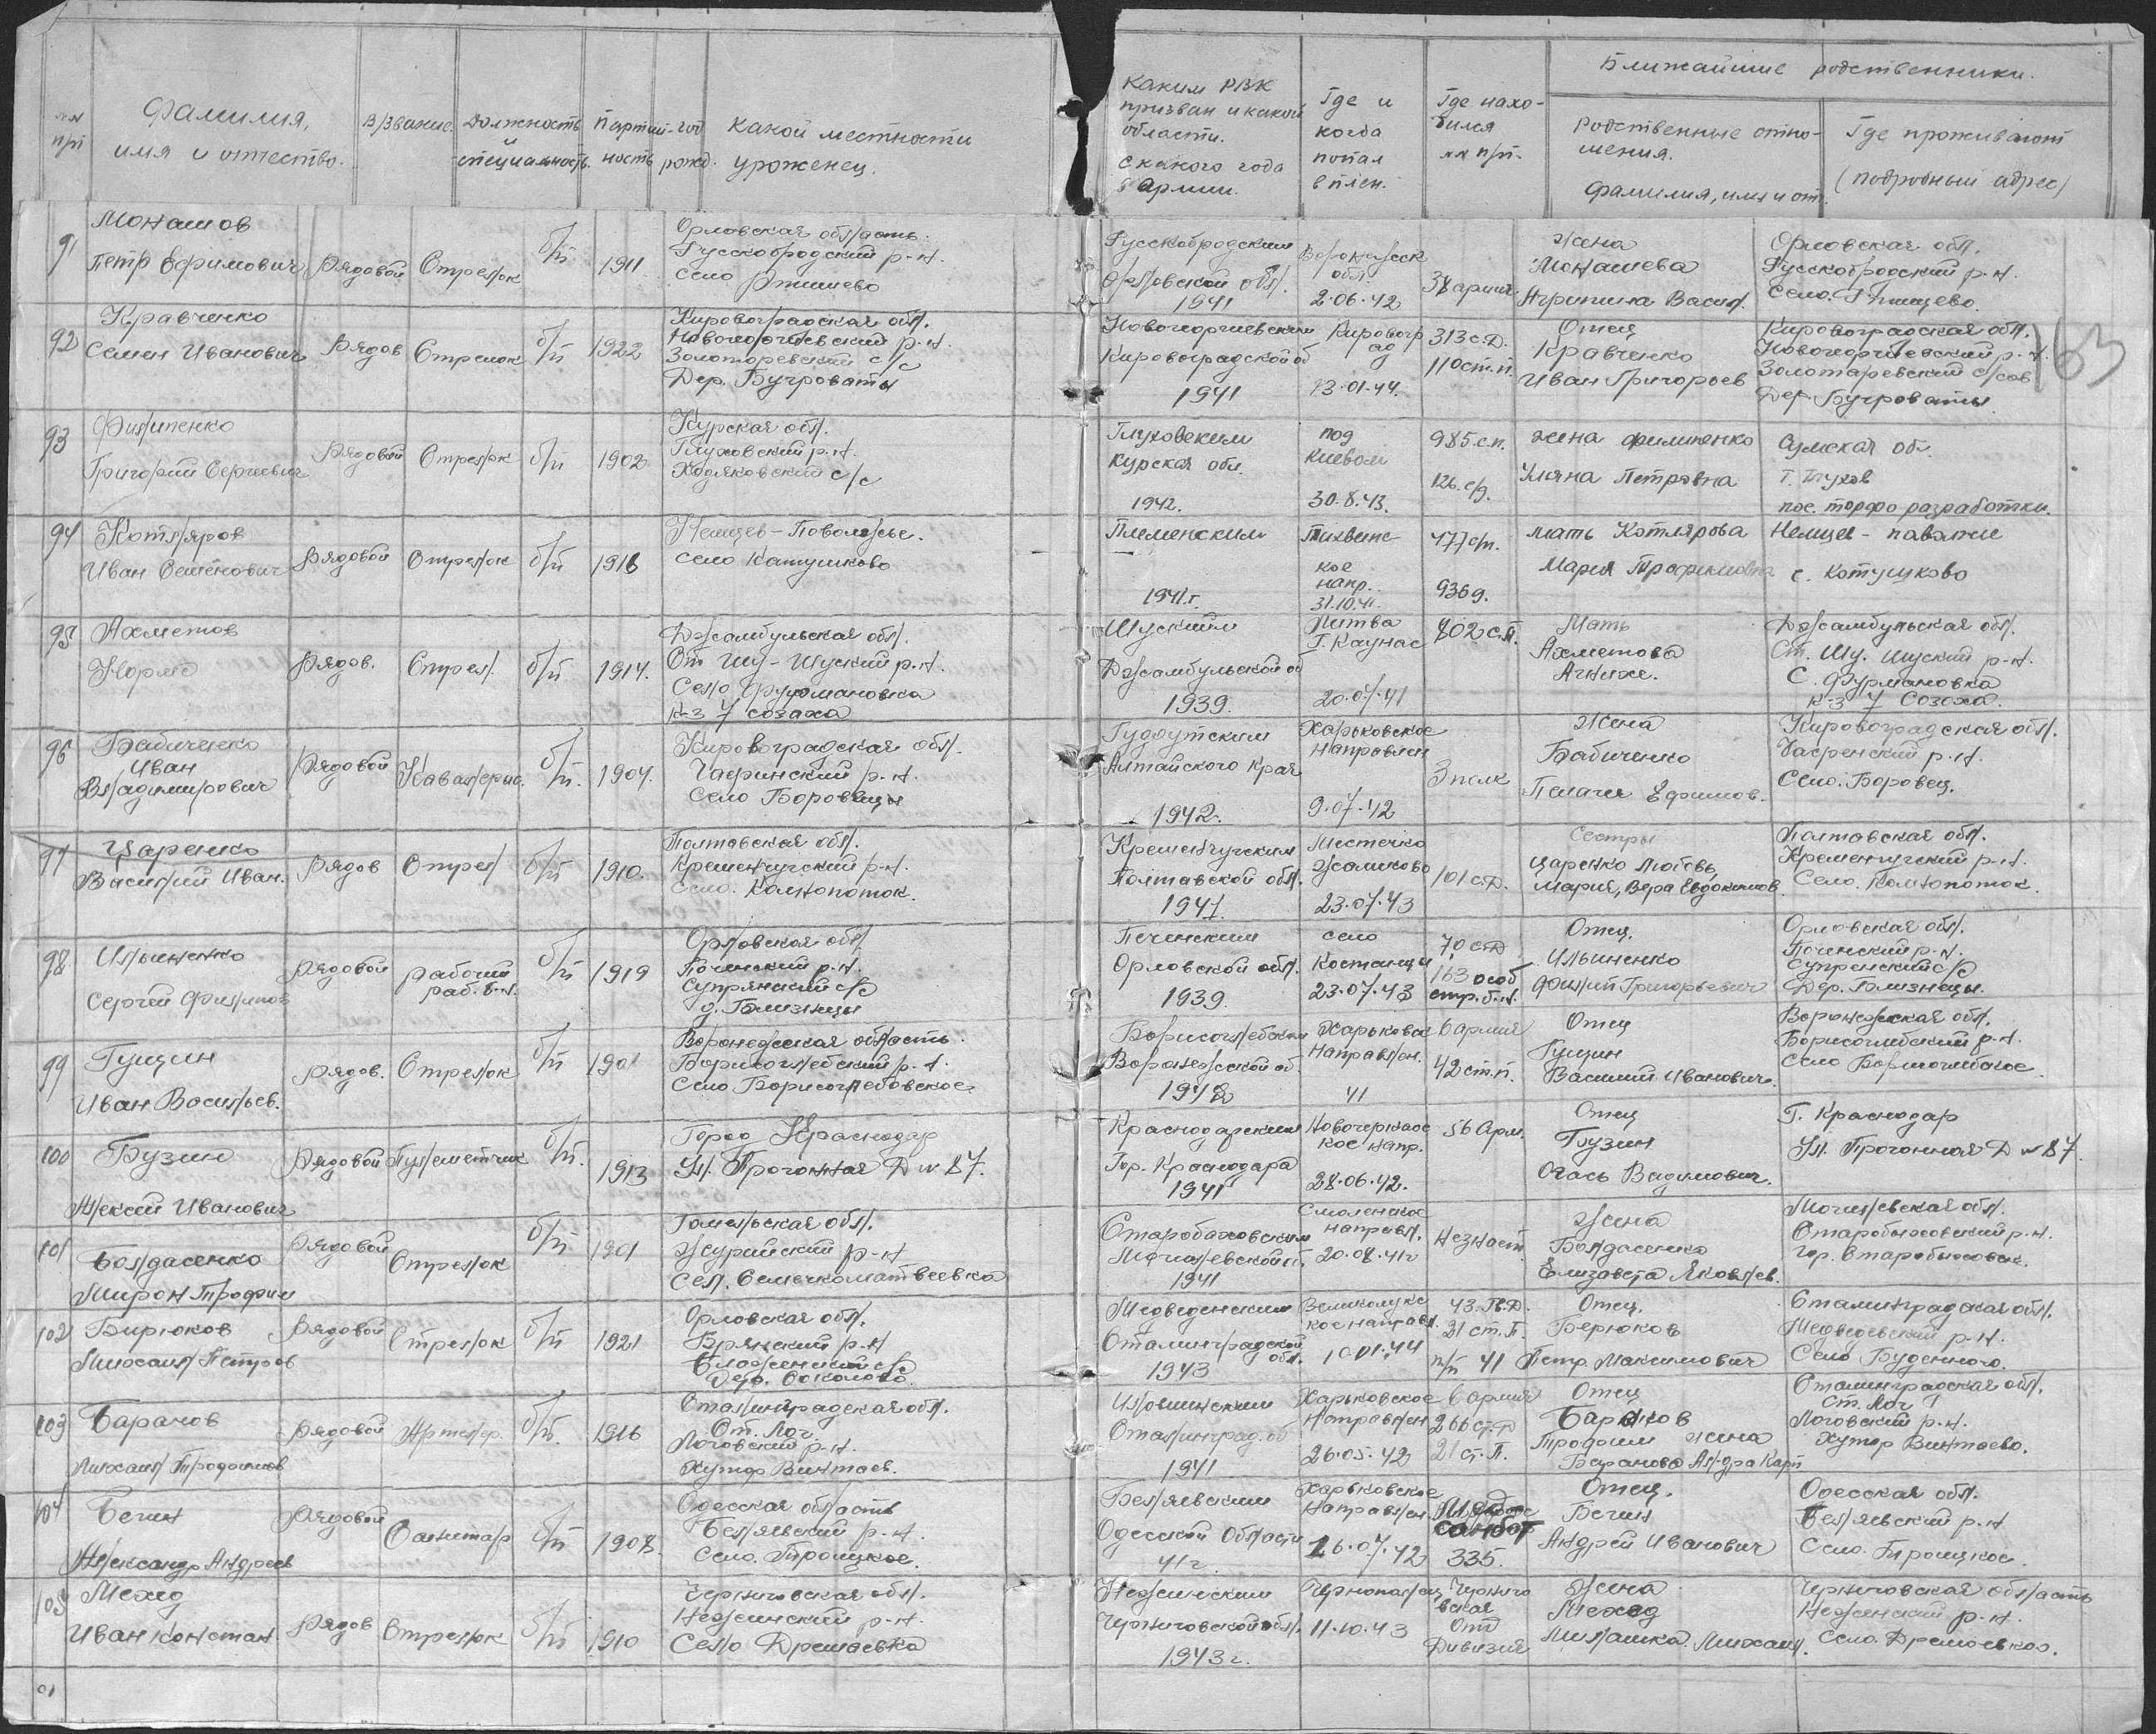 Ближайшие родственники.
№№ п/п
Фамилия, имя и отчество.
В/звание.
Должность и специальность.
Партийность
год рожд.
Какой местности уроженец.
Каким РВК призван и какой области. С какого года в армии.
Где и когда попал в плен.
Где находился №№ п/п.
Родственные отношения. Фамилия, имя и от.
Где проживают (подробный адрес)
163
91
Монашов
Петр Ефимович
Рядовой
Стрелок
б/п
1911
Орловская область.
Русскобродский р-н.
Село
Русскобродским
Орловской обл.
1941
Воронежск
обл.
2.06.42
38 армия
Жена
Монашева
Агрипина Васил.
Орловская обл.
Русскобродский р-н.
Село.
92
Кравченко
Семен Иванович
Рядов
Стрелок
б/п
1922
Кировоградская обл.
Новогеоргиевский р-н.
Золоторевский с/с
Дер. Бугроваты
Новогеоргиевским
Кировоградской об
1941
Кировогр
ад
13.01.44.
313 с.д.
110 ст.п.
Отец
Кравченко
Иван Григорьев
Кировоградская обл.
Новогеоргиевский р-н.
Золотаревский с/сов
Дер. Бугроваты
93
Филипенко
Григорий Сергеевич
Рядовой
Стрелок
б/п
1902
Курская обл.
Глуховский р.н.
Ходяковский с/с
Глуховским
Курская обл.
1942.
под
Киевом
30.8.43.
985 с.п.
126 с/д.
жена Филипенко
Уляна Петровна
Сумская об.
Г. Глухов
пос. торфо разработки.
94
Котляров
Иван Семёнович
Рядовой
Стрелок
б/п
1918
Немцев-Поволжье.
Село Катушково
Племенским
1941.г.
Тихвинс
кое
напр..
31.10.41.
477 с/п.
936 д.
мать Котлярова
Мария Трофимовна
Немцев-паволжие
с. Котушково
95
Ахметов
Рядов.
Стрел.
б/п
1914.
Джамбульская обл.
Ст Шу-Шуский р.н.
Село Фурмановка
к-з 7 созаха
Шуским
Джамбульской об
1939.
Литва
Г. Каунас
20.07.41
802 с.п.
Мать
Ахметова
Джамбульская обл.
Ст. Шу. Шуский р-н.
С. Фурмановка
к-з 7 Созоха.
96
Бабиченко
Иван
Владимирович
Рядовой
Кавалерис.
б/п.
1904.
Кировоградская обл.
р.н.
Село
Алтайского края
1942.
Харьковское
Направлен
9.07.42
3 полк
Жена
Бабиченко
Пелагея Ефимов.
Кировоградская обл.
р-н.
Село. Боровец.
97
Царенко
Василий Иван.
Рядов
Стрел
б/п
1910.
Полтавская обл.
Кременчугский р-н.
Село. Камнопоток.
Кременчугским
Полтавской обл.
1941.
Местечко
23.07.43
101 с.д.
Сестры
Царенко Любовь,
Мария, Вера Евдокимов
Полтавская обл.
Кременчугский р-н.
Село. Камнопоток.
98
Ильиненко
Сергей Филипов
Рядовой
рабочий
раб. б-н.
б/п
1919
Орловская обл.
Почепский р.н.
Супрянский с/с
д. Близницы
Орловской обл.
1939.
село
Костанци
23.07.43
70 с.д
163 особ
стр. б.н.
Отец.
Ильиненко
Филип Григорьевич
Орловская обл.
Почепский р-н.
Супренский с/с
Дер. Близнецы.
99
Гущин
Иван Васильев.
Рядов.
Стрелок
б/п
1901
Воронежская область.
Борисоглебский р.н.
Село Борисоглебовское
Борисоглебским
Воронежской об.
Харьковск
Направлен.
41
6 армия
42 ст.п.
Отец
Гущин
Василий Иванович.
Воронежская обл.
Борисоглебский р.н.
Село
100
Бузин
Алексей Иванович
Рядовой
Пулеметчик
б/п.
1913
Город Краснодар
Ул. Прогонная Д № 87.
Краснодарским
Гор. Краснодара
1941
Новочеркасс
кое напр.
28.06.42.
56 Арм.
Отец
Бузин
Г. Краснодар
Ул. Прогонная Д № 87.
101
Болдасенко
Мирон Трофим
Рядовой
Стрелок
б/п
1901
Гомельская обл.
р-н
Могилевской об.
1941
Смоленское
направл.
20.08.41г
Незнает
Жена
Болдасенко
Елизавета Яковлев.
Могилевская обл.
Старобыховский р-н.
гор. Старобыховск.
102
Бирюков
Михаил Петров
Рядовой
Стрелок
б/п
1921
Орловская обл.
Брянский р-н
Дер. Соколово.
Сталинградской
обл.
1943
Великолукс
кое направл.
10.01.44
43. Гв.Д.
21 ст. П.
п/п 41
Отец.
Берюков
Петр. Максимович
Сталинградская обл.
р-н.
Село Буденного.
103
Баранов
Михаил Трофимов
Рядовой
Артелер.
б/п.
1916
Сталинградская обл.
Ст. Лог.
Логовский р-н.
Хутор Винтаев.
Иловлинским
Сталинград. об
1941
Харьковское
Направлен
26.05.42
6 армия
266 ст.Д
21 ст. П.
Отец
Баранов
Трофим жена
Баранова Ал-дра Карп
Сталинградская обл.
ст. Лог
Логовский р-н.
Хутор Винтаево.
104
Бегин
Александр Андреев
Рядовой
Санитар
б/п
1908.
Одесская область
Беляевский р-н.
Село. Троицкое.
Беляевским
Одесской Области
41г.
Харьковское
Направлен
16.07.42
санбат
335.
Отец.
Бегин
Андрей Иванович
Одесская обл.
Беляевский р-н
Село. Троицкое.
105
Мехед
Иван Констан
Рядов
Стрелок
б/п
1910
Черниговская обл.
Нежинский р-н.
Село
Нежинским
Черниговской обл.
1943 г.
11.10.43
Черниго
вская
Отд
Дивизия
Жена
Мехед
Милашка. Михаил.
Черниговская область
Нежинский р-н.
Село.